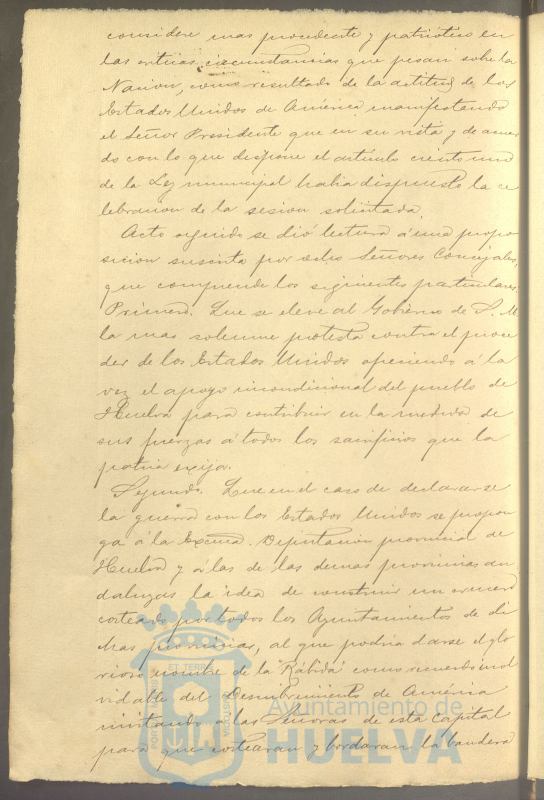 considere mas procedente y patriótico en
las críticas circunstancias que pesan sobre la
Nacion, como resultado de la actitud de los
Estados Unidos de América manifestando
el Señor Presidente que en su vista y de acuer
do con lo que dispone el artículo ciento uno
de la Ley municipal habia dispuesto la ce
lebracion de la sesion solicitada.
Acto seguido se dió lectura á una propo
sicion suscrita por ocho Señores Concejales,
que comprende los siguientes particulares
Primero. Que se eleve al Gobierno de S. M.
la mas solemne protesta contra el proce
der de los Estados Unidos ofreciendo á la
vez el apoyo incondicional del pueblo de
Huelva para contribuir en la medida de
sus fuerzas á todos los sacrificios que la
patria exija.
Segundo. Que en el caso de declararse
la guerra con los Estados Unidos se propon
ga á la Excma. Diputacion provincial de
Huelva y á las de las demas provincias an
daluzas la idea de construir un crucero
costeado por todos los Ayuntamientos de di
chas provincias, al que podria darse el glo
rioso nombre de la "Rábida" como recuerdo inol
vidable del Descubrimiento de América
invitando á las Señoras de esta Capital
para que costearan y bordaran la bandera
Ayuntamiento de
HUELVA